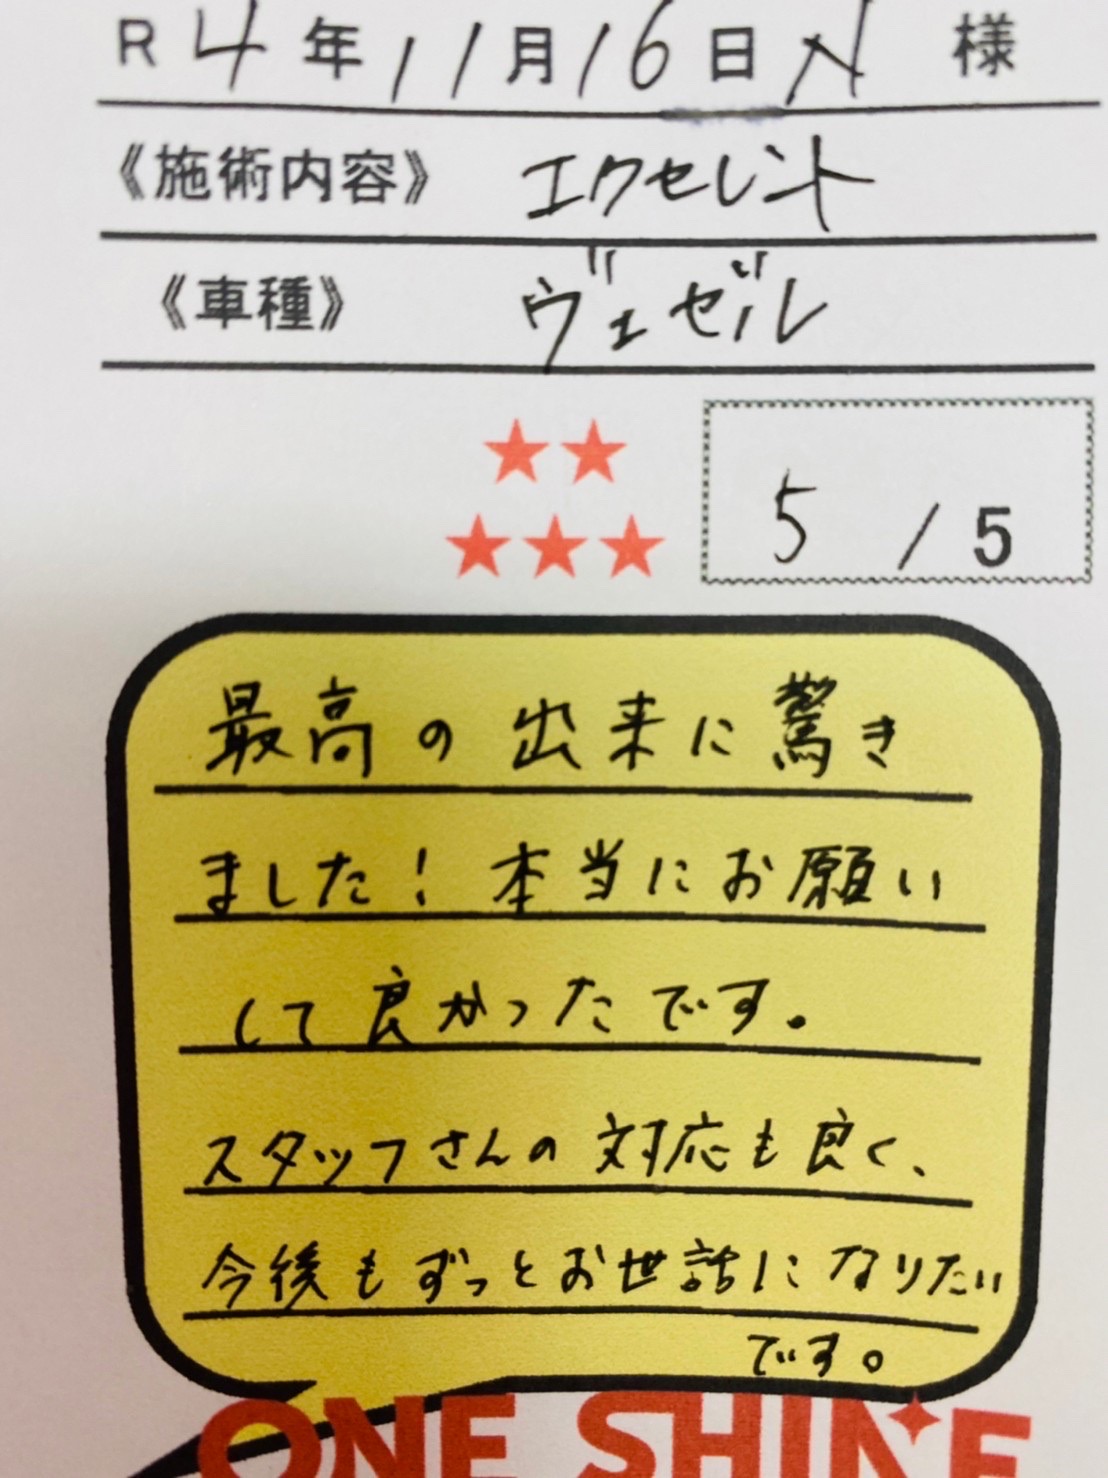 R 4年11月16日 N 様
《施術内容》 エクセレント
《車種》 ヴェゼル
5 / 5
最高の出来に驚き
ました！本当にお願い
して良かったです。
スタッフさんの対応も良く、
今後もずっとお世話になりたい
です。
ONE SHINE